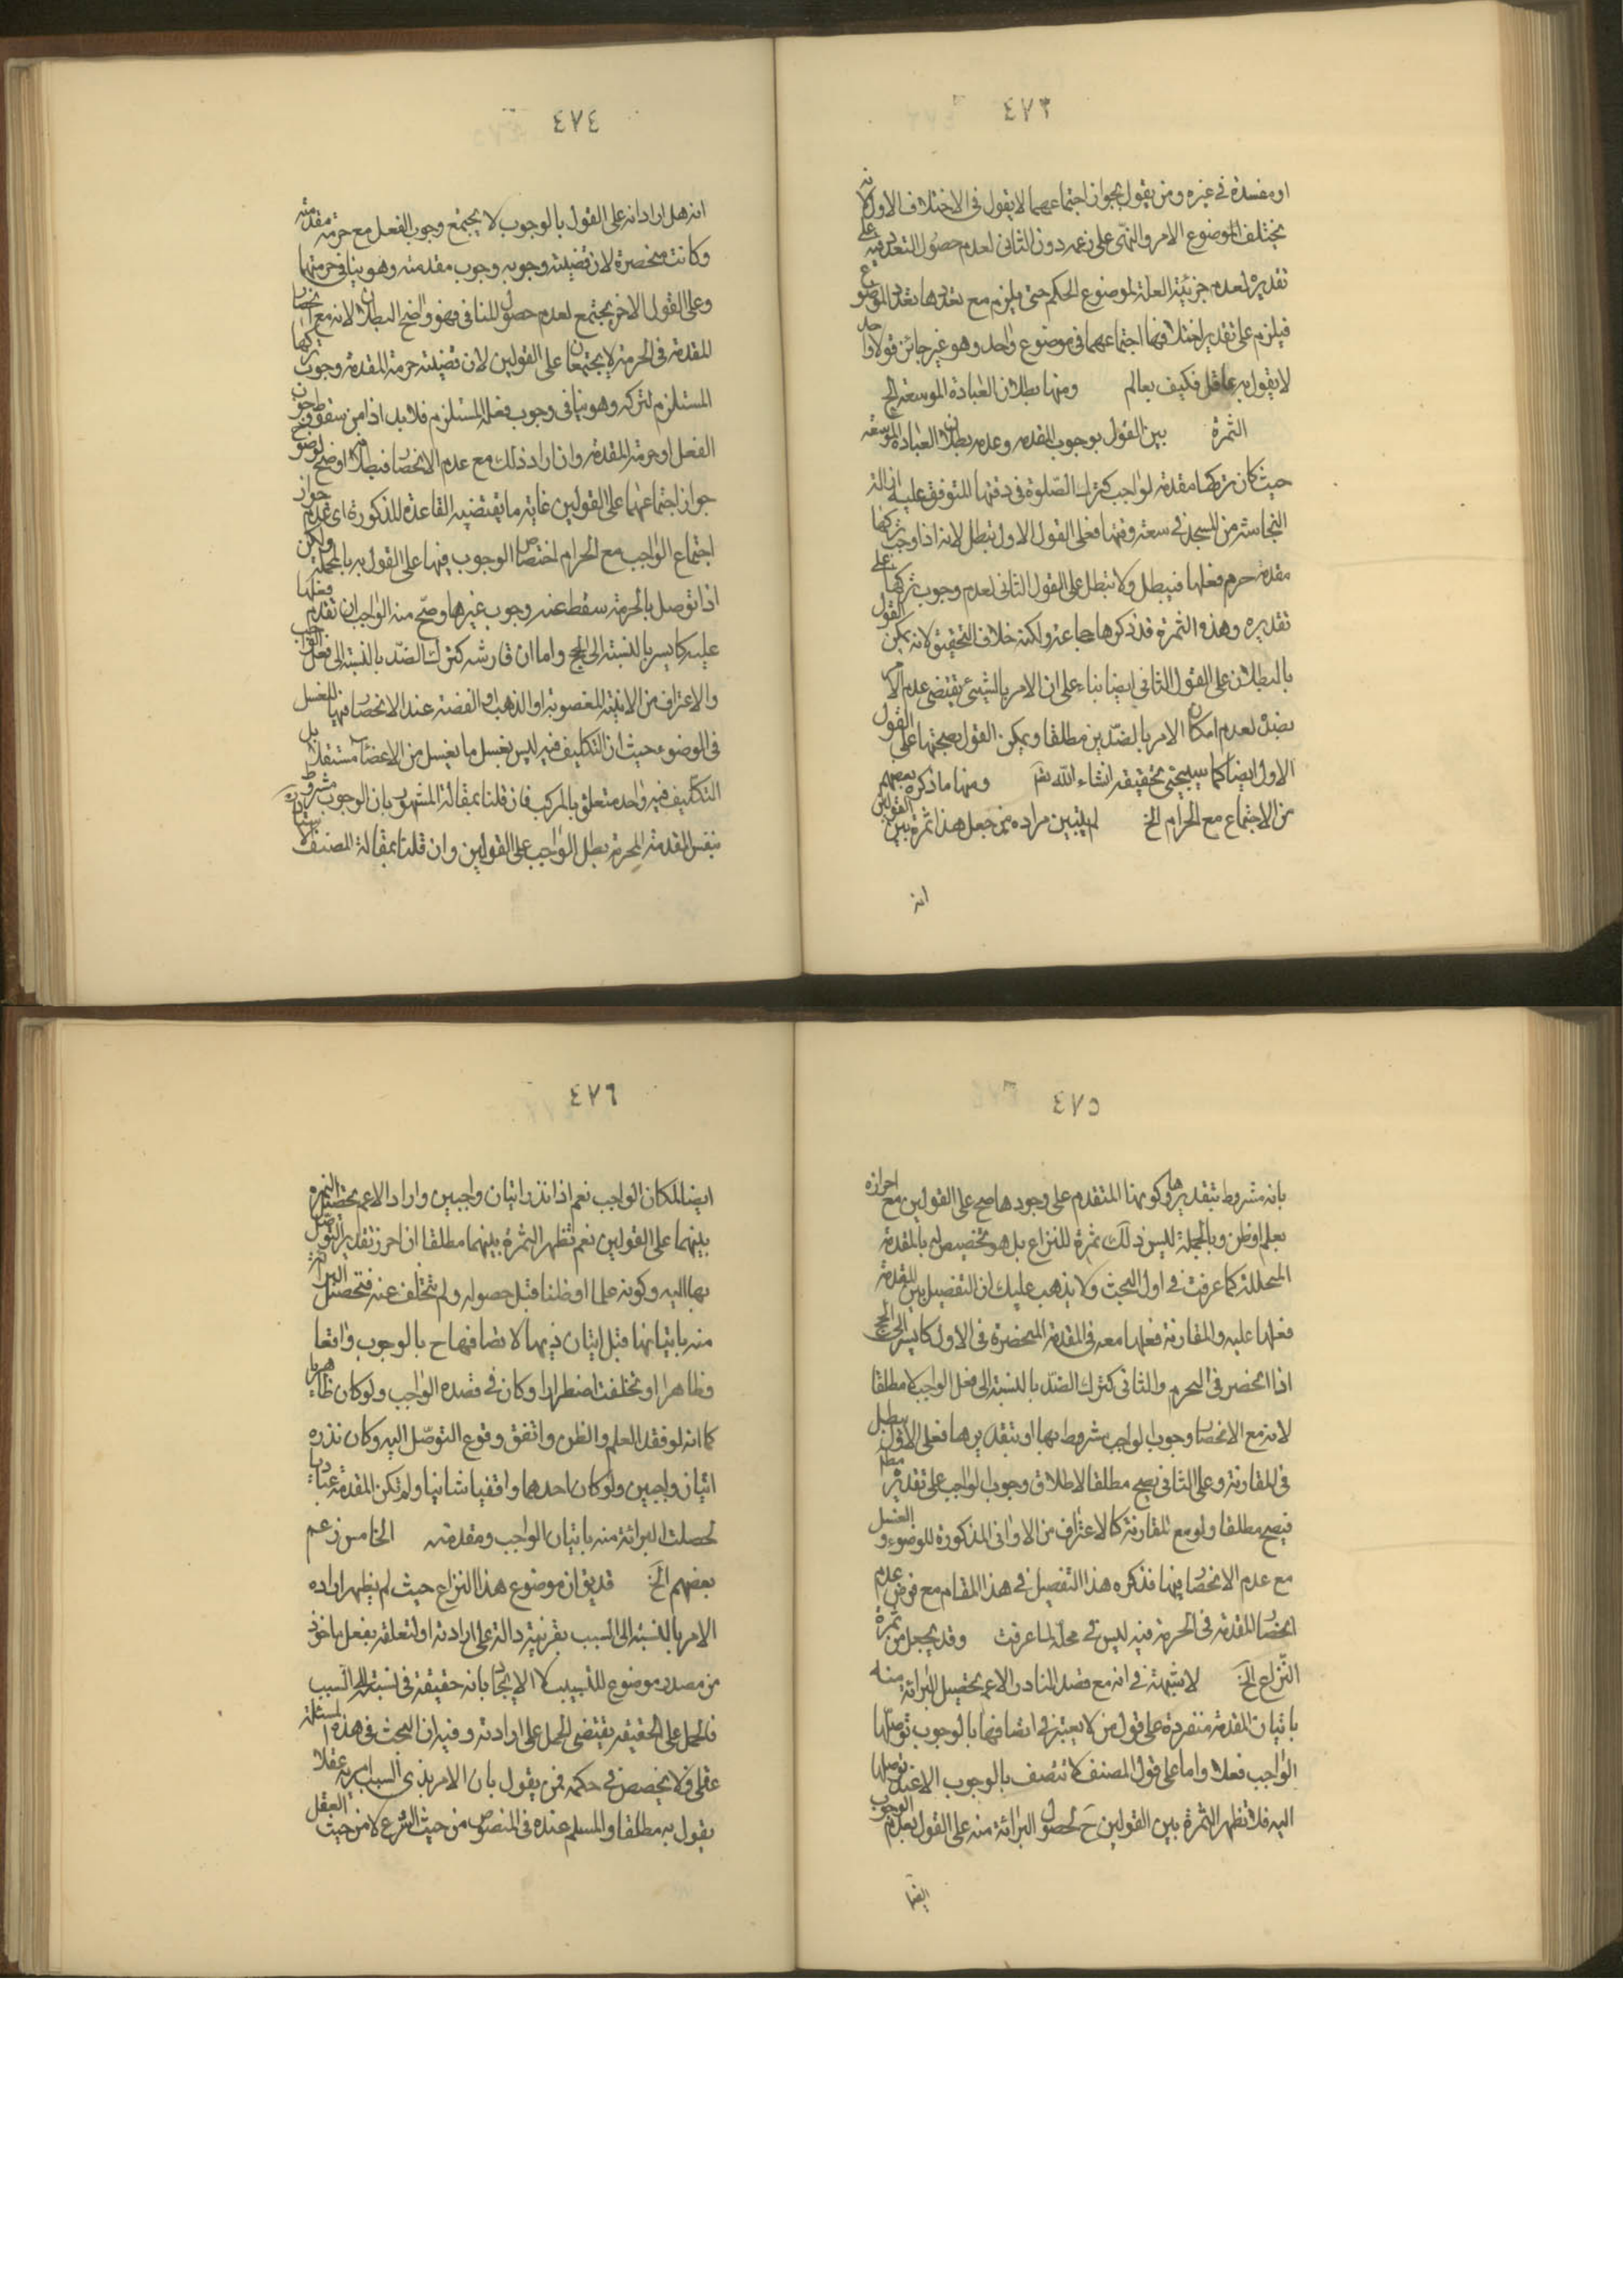 ٤٧٣
او مفسدة في غيره ومن يقول بجواز اجتماعهما لا يقول في الاختلاف الاول لانه
يختلف الموضوع الامر والنهى على زعمه دون الثاني لعدم حصول التعدد فيه على
تقديره لعدم جزئية العلة لموضوع الحكم حتى يلزم مع تعددها تعدد الموضوع
فيلزم على تقدير اختلافهما اجتماعهما في موضوع واحد وهو غير جائز قولا واحدا
لا يقول به عاقل فكيف بعالم ومنها بطلان العبادة الموسعة الخ
الثمرة بين القول بوجوب المقدمه وعدمه بطلان العبادة الموسعه
حيث كان تركها مقدمة لواجب كترك الصلوة في وقتها للتوقف عليه ازالة
النجاسة من المسجد في سعة وقتها فعلى القول الاول تبطل لانه اذا وجب تركها
مقدمة حرم فعلها فيبطل ولا تبطل على القول الثاني لعدم وجوب تركها على
تقديره وهذه الثمرة قد ذكرها جماعة ولكنه خلاف التحقيق لانه يمكن القول
بالبطلان على القول الثاني ايضا بناء على ان الامر بالشيئ يقتضى عدم الامر
بضده لعدم امكان الامر بالضدين مطلقا ويمكن القول بصحتها على القول
الاول ايضا كما سيجئ تحقيقه انشاء الله تعالى ومنها ما ذكره بعضهم
من الاجتماع مع الحرام الخ لم يتبين مراده من جعل هذا ثمرة بين القولين
انه
٤٧٤
انه هل اراد انه على القول بالوجوب لا يجتمع وجوب الفعل مع حرمة مقدمته
وكانت منحصرة لان قضيته وجوبه وجوب مقدمته وهو ينافي حرمتها
وعلى القول الاخر يجتمع لعدم حصول المنافى فهو واضح البطلان لانه مع انحصار
المقدمة في الحرمة لا يجتمعان على القولين لان قضيته حرمة المقدمة وجوب تركها
المستلزم لتركه وهو ينافى وجوب فعله المستلزم فلا بد اذا من سقوط وجوب
الفعل او حرمة المقدمة وان اراد ذلك مع عدم الانحصار فبطلانه اوضح لوضوح
جواز اجتماعهما على القولين غاية ما يقتضيه القاعدة المذكورة اى عدم جواز
اجتماع الواجب مع الحرام اختصاص الوجوب فيها على القول به بالمحللة ولكن
اذا توصل بالحرمة سقط عنه وجوب غيرها وصح منه الواجب ان تقدم فعلها
عليه كالسير بالنسبة الى الحج واما ان قارنته كترك الضد بالنسبة الى فعل الواجب
والاغتراف من الانية المغصوبة او الذهب او الفضة عند الانحصار فيها للغسل
في الوضوء حيث ان التكليف فيه ليس بغسل ما يغسل من الاعضاء مستقلا بل
التكليف فيه واحد متعلق بالمركب فان قلنا بمقالة المشهور بان الوجوب مشروط
بنفس المقدمة المحرمة بطل الواجب على القولين وان قلنا بمقالة المصنف الاستاد
٤٧٥
بانه مشروط بتقديرها وكونها المتقدم على وجودها صح على القولين مع احرازه
بعلم او ظن وبالجملة ليس ذلك ثمرة للنزاع بل هو تخصيص له بالمقدمة
المحللة كما عرفت في اول البحث ولا يذهب عليك ان التفصيل بين المقدمة
فعلها عليه والمقارنة فعلها معه في المقدمة المنحصرة في الاول كالسير الى الحج
اذا انحصر في المحرم والثاني كترك الضد بالنسبة الى فعل الواجب لا مطلقا
لانه مع الانحصار وجوب الواجب مشروط بها او بتقديرها فعلى الاول يبطل
في المقارنة وعلى الثاني يصح مطلقا لاطلاق وجوب الواجب على تقدير
فيصح مطلقا ولو مع المقارنة كالاغتراف من الاواني المذكورة للوضوء والغسل
مع عدم الانحصار فيها فذكره هذا التفصيل في هذا المقام مع فرض عدم
انحصار المقدمة في الحرمة فيه ليس في محله لما عرفت وقد يجعل من ثمرة
النزاع الخ لا شبهة في انه مع قصد الناذر الاعم بحصيل البرائة منه
باتيان المقدمة منفردة على قول من لا يعتبر في اتصافها بالوجوب توصلها
الواجب فعلا واما على قول المصنف لا تتصف بالوجوب الا عند توصلها
اليه فلا تظهر الثمرة بين القولين ح لحصول البرائة منه على القول بعدم الوجوب
ايضا
٤٧٦
ايضا لمكان الواجب نعم اذا نذر اتيان واجبين واراد الاعم تحصيل الثمرة
بينهما على القولين نعم تظهر الثمرة بينهما مطلقا ان احرز تقدير التوصل
بها اليه وكونه علما او ظنا قبل حصوله ولم تتخلف عنه فتحصل البرائة
منه باتيانها قبل اتيان ذيها لاتصافها ح بالوجوب واقعا
وظاهرا او تخلفت اضطرارا وكان في قصده الواجب ولو كان ظاهريا
كما انه لو فقد العلم والظن واتفق وقوع التوصل اليه وكان نذره
اتيان واجبين ولو كان احدهما واقفيا شانيا ولم تكن المقدمة عبادية
لحصلت البرائة منه باتيان الواجب ومقدمته الخامس زعم
بعضهم الخ قد يق ان موضوع هذا النزاع حيث لم يظهر اراده
الامر بالنسبة الى السبب بقرينة دالة على ارادته او لتعلقه بفعل ماخوذ
من مصدر موضوع للتسبيب كالايجاد بانه حقيقة في نسبته الى السبب
فالحمل على الحقيقه يقتضى الحمل على ارادته وفيه ان البحث في هذه المسئلة
عقلى فلا يخصص في حكمه فمن يقول بان الامر بذى السبب امر به عقلا
يقول به مطلقا والمسلم عنده في المنصوص من حيث الشرع لا من حيث العقل